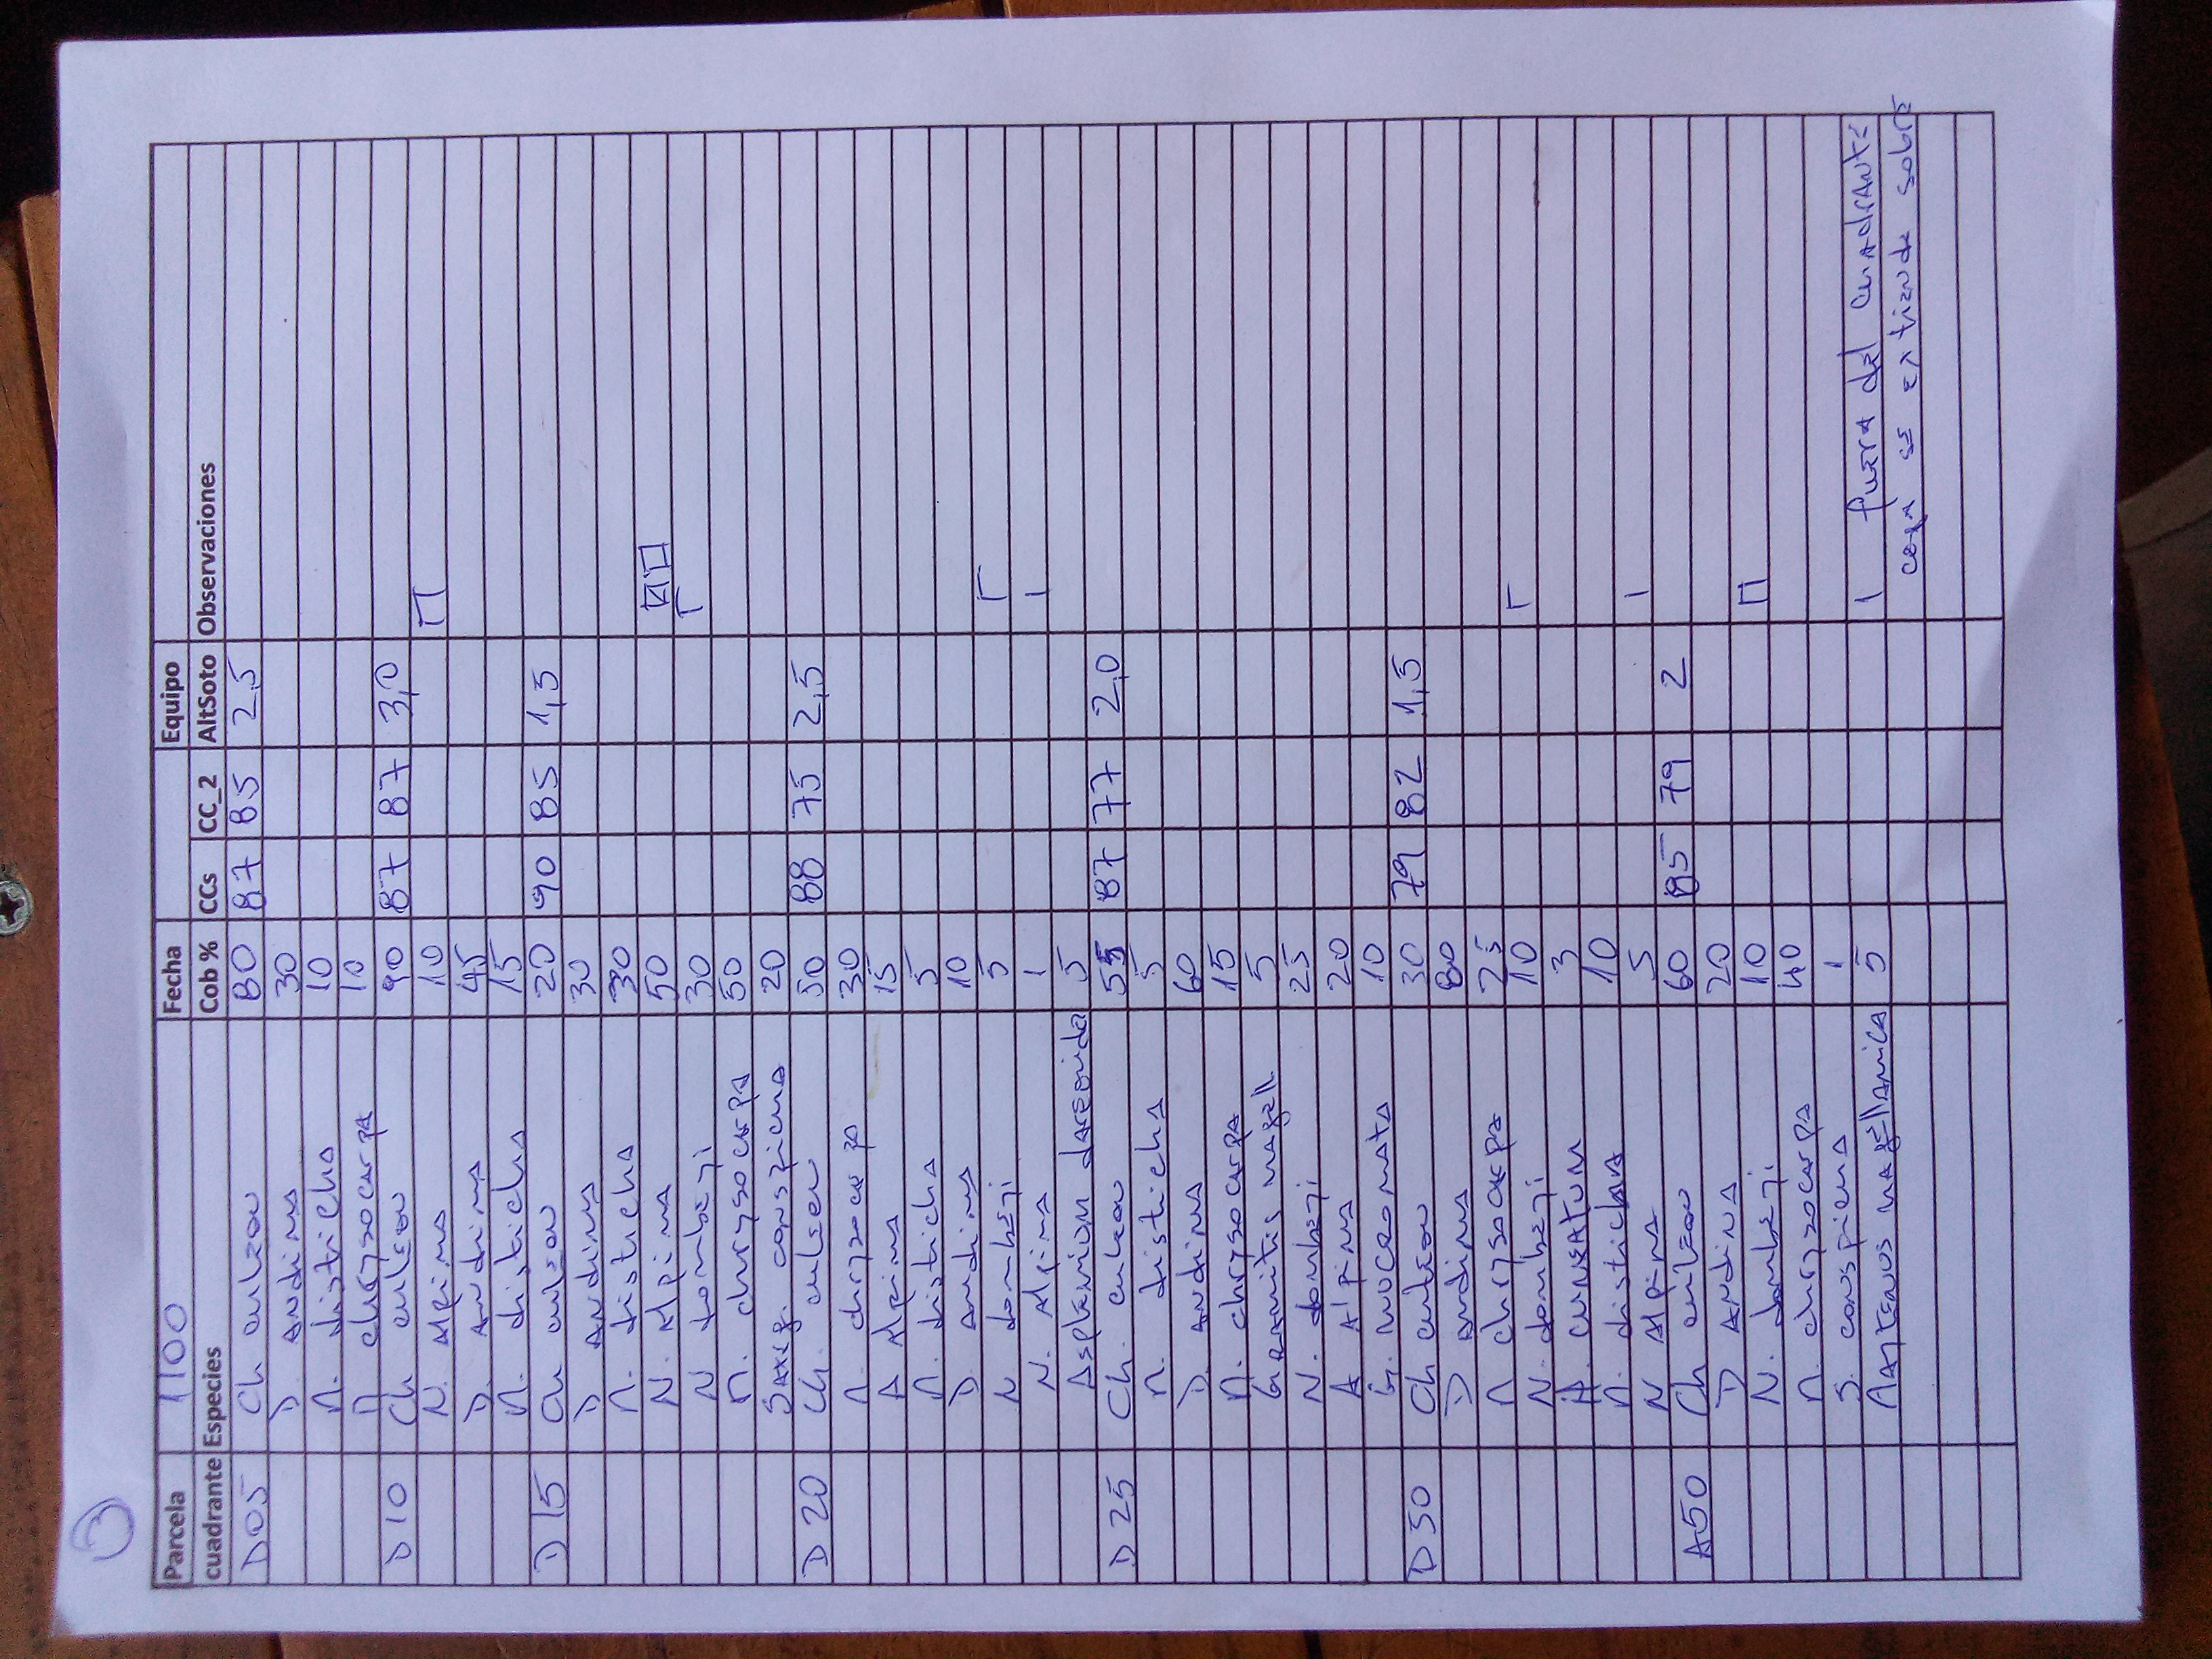 3
Parcela 1100 Fecha Equipo
cuadrante Especies Cob % CCs CC_2 AltSoto Observaciones
D05 Ch culeou 80 87 85 2,5
D. Andina 30
M. disticha 10
M chrysocarpa 10
D10 Ch culeou 90 87 87 3,0
N. Alpina 10
D. Andina 45
M. disticha 15
D 15 Ch culeou 20 90 85 1,5
D Andina 30
M. disticha 30
N. Alpina 50
N dombeyi 30
M. chrysocarpa 50
Saxeg. conspicua 20
D 20 Ch. culeou 50 88 75 2,5
M. chrysocarpa 30
A Alpina 15
M. disticha 5
D. andina 10
N dombeyi 5
N. Alpina 1 I
Asplenium dareoides 5
D 25 Ch. culeou 55 87 77 2,0
M. disticha 5
D. Andina 60
M. chrysocarpa 15
Gramitis magell. 5
N. dombeyi 25
A Alpina 20
G. mucronata 10
D 50 Ch culeou 30 79 82 1,5
D andina 80
M chrysocarpa 25
N. dombeyi 10
H. cuneatum 3
M. disticha 10
N Alpina 5 I
A50 Ch culeou 60 85 79 2
D Andina 20
N. dombeyi 10
M. chrysocarpa 40
S. conspicua 1
Maytenus magellanica 5 I fuera del cuadrante
copa se extiende sobre